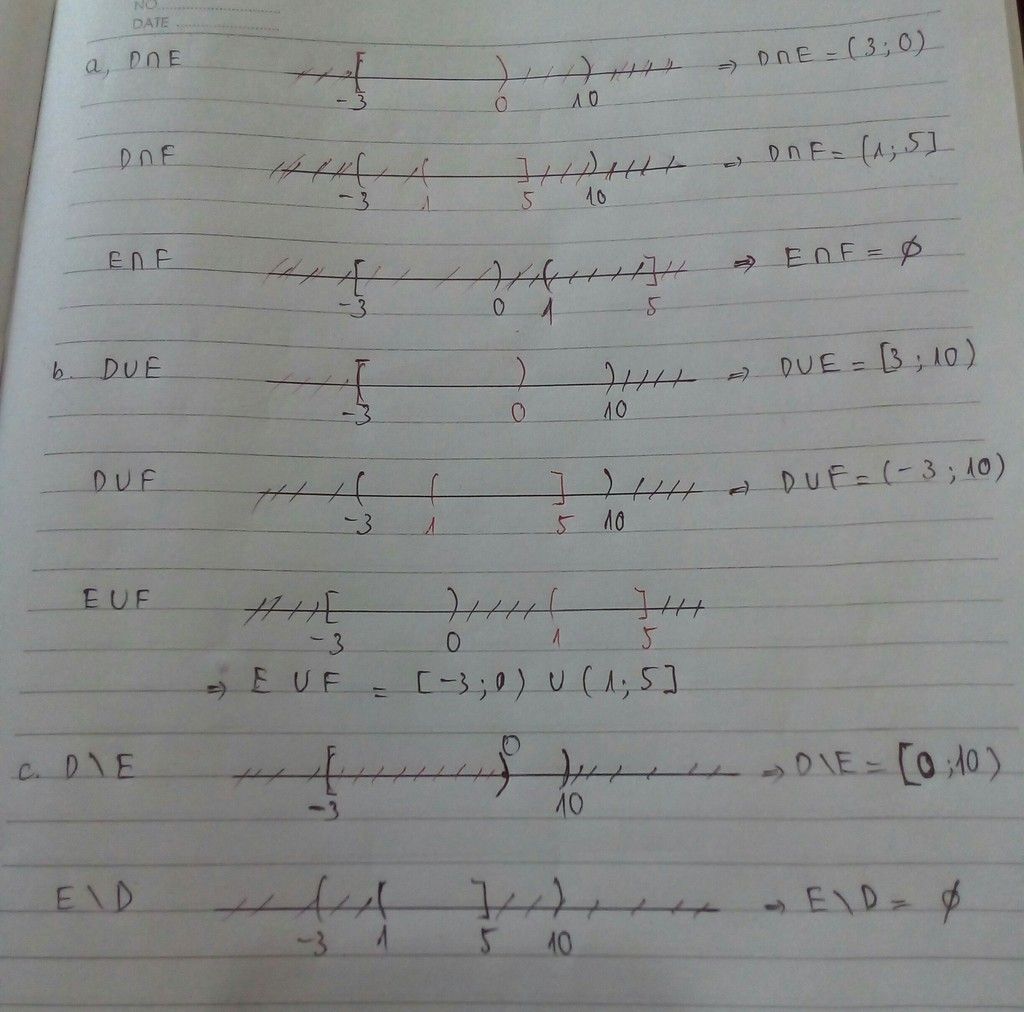 NO
DATE
a, D∩E -3 0 10 ⇒ D∩E = (3;0)
D∩F -3 1 5 10 ⇒ D∩F = (1;5]
E∩F -3 0 1 5 ⇒ E∩F = ∅
b. D∪E -3 0 10 ⇒ D∪E = [3;10)
D∪F -3 1 5 10 ⇒ D∪F = (-3;10)
E∪F -3 0 1 5
⇒ E ∪ F = [-3;0) ∪ (1;5]
c. D\E -3 0 10 ⇒ D\E = [0;10)
E\D -3 1 5 10 ⇒ E\D = ∅